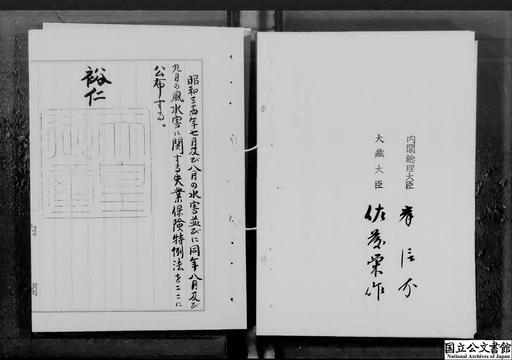 昭和三十四年七月及び八月の水害並びに同年八月及び
九月の風水害に関する失業保険特例法をここに
公布する。
裕仁
天皇
御璽
内閣総理大臣 岸信介
大蔵大臣 佐藤栄作
国立公文書館
National Archives of Japan